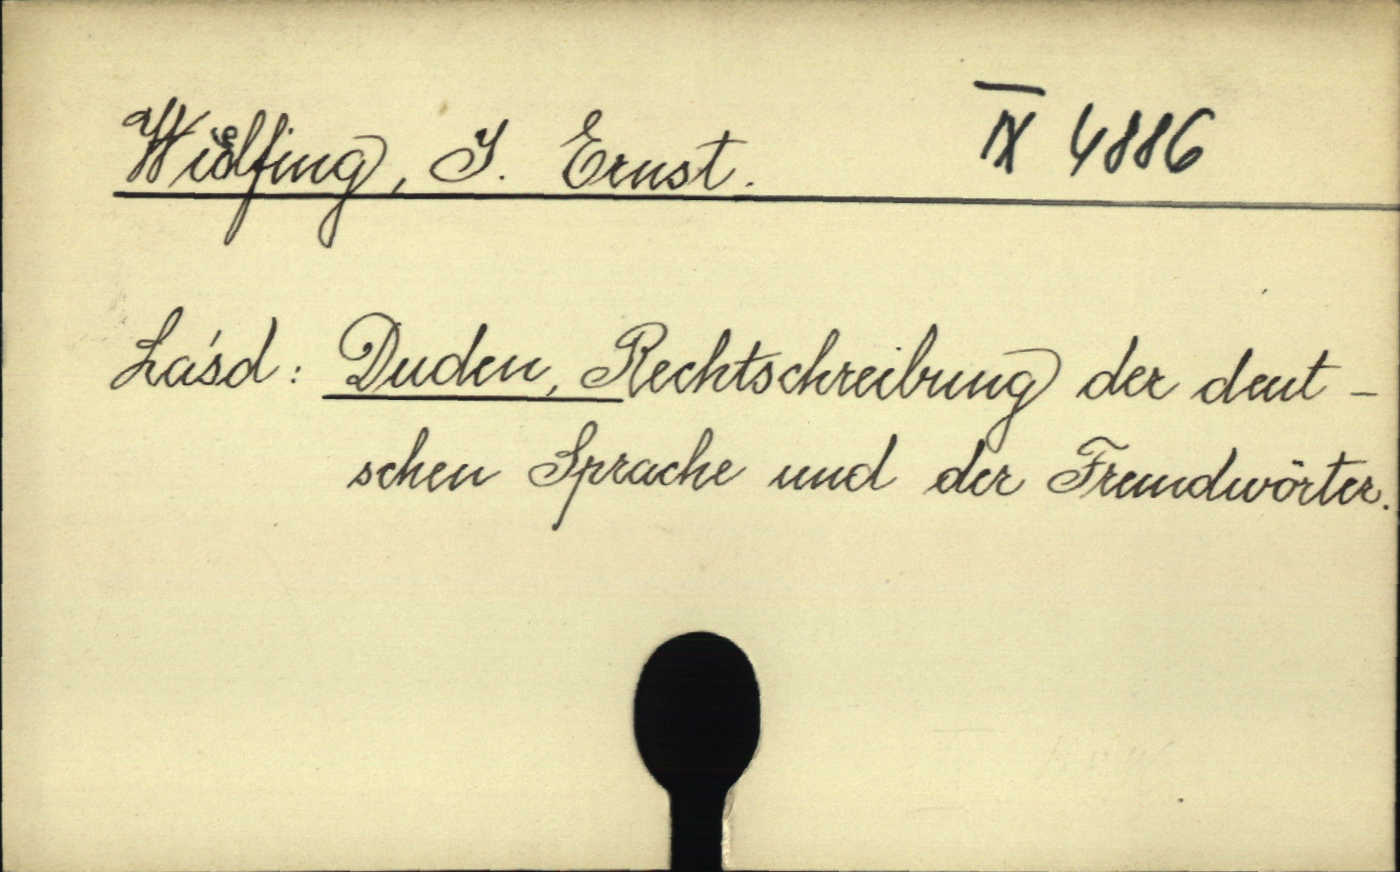 Wülfing, J. Ernst.
IX 4886
Lásd: Duden, Rechtschreibung der deut-
schen Sprache und der Fremdwörter.